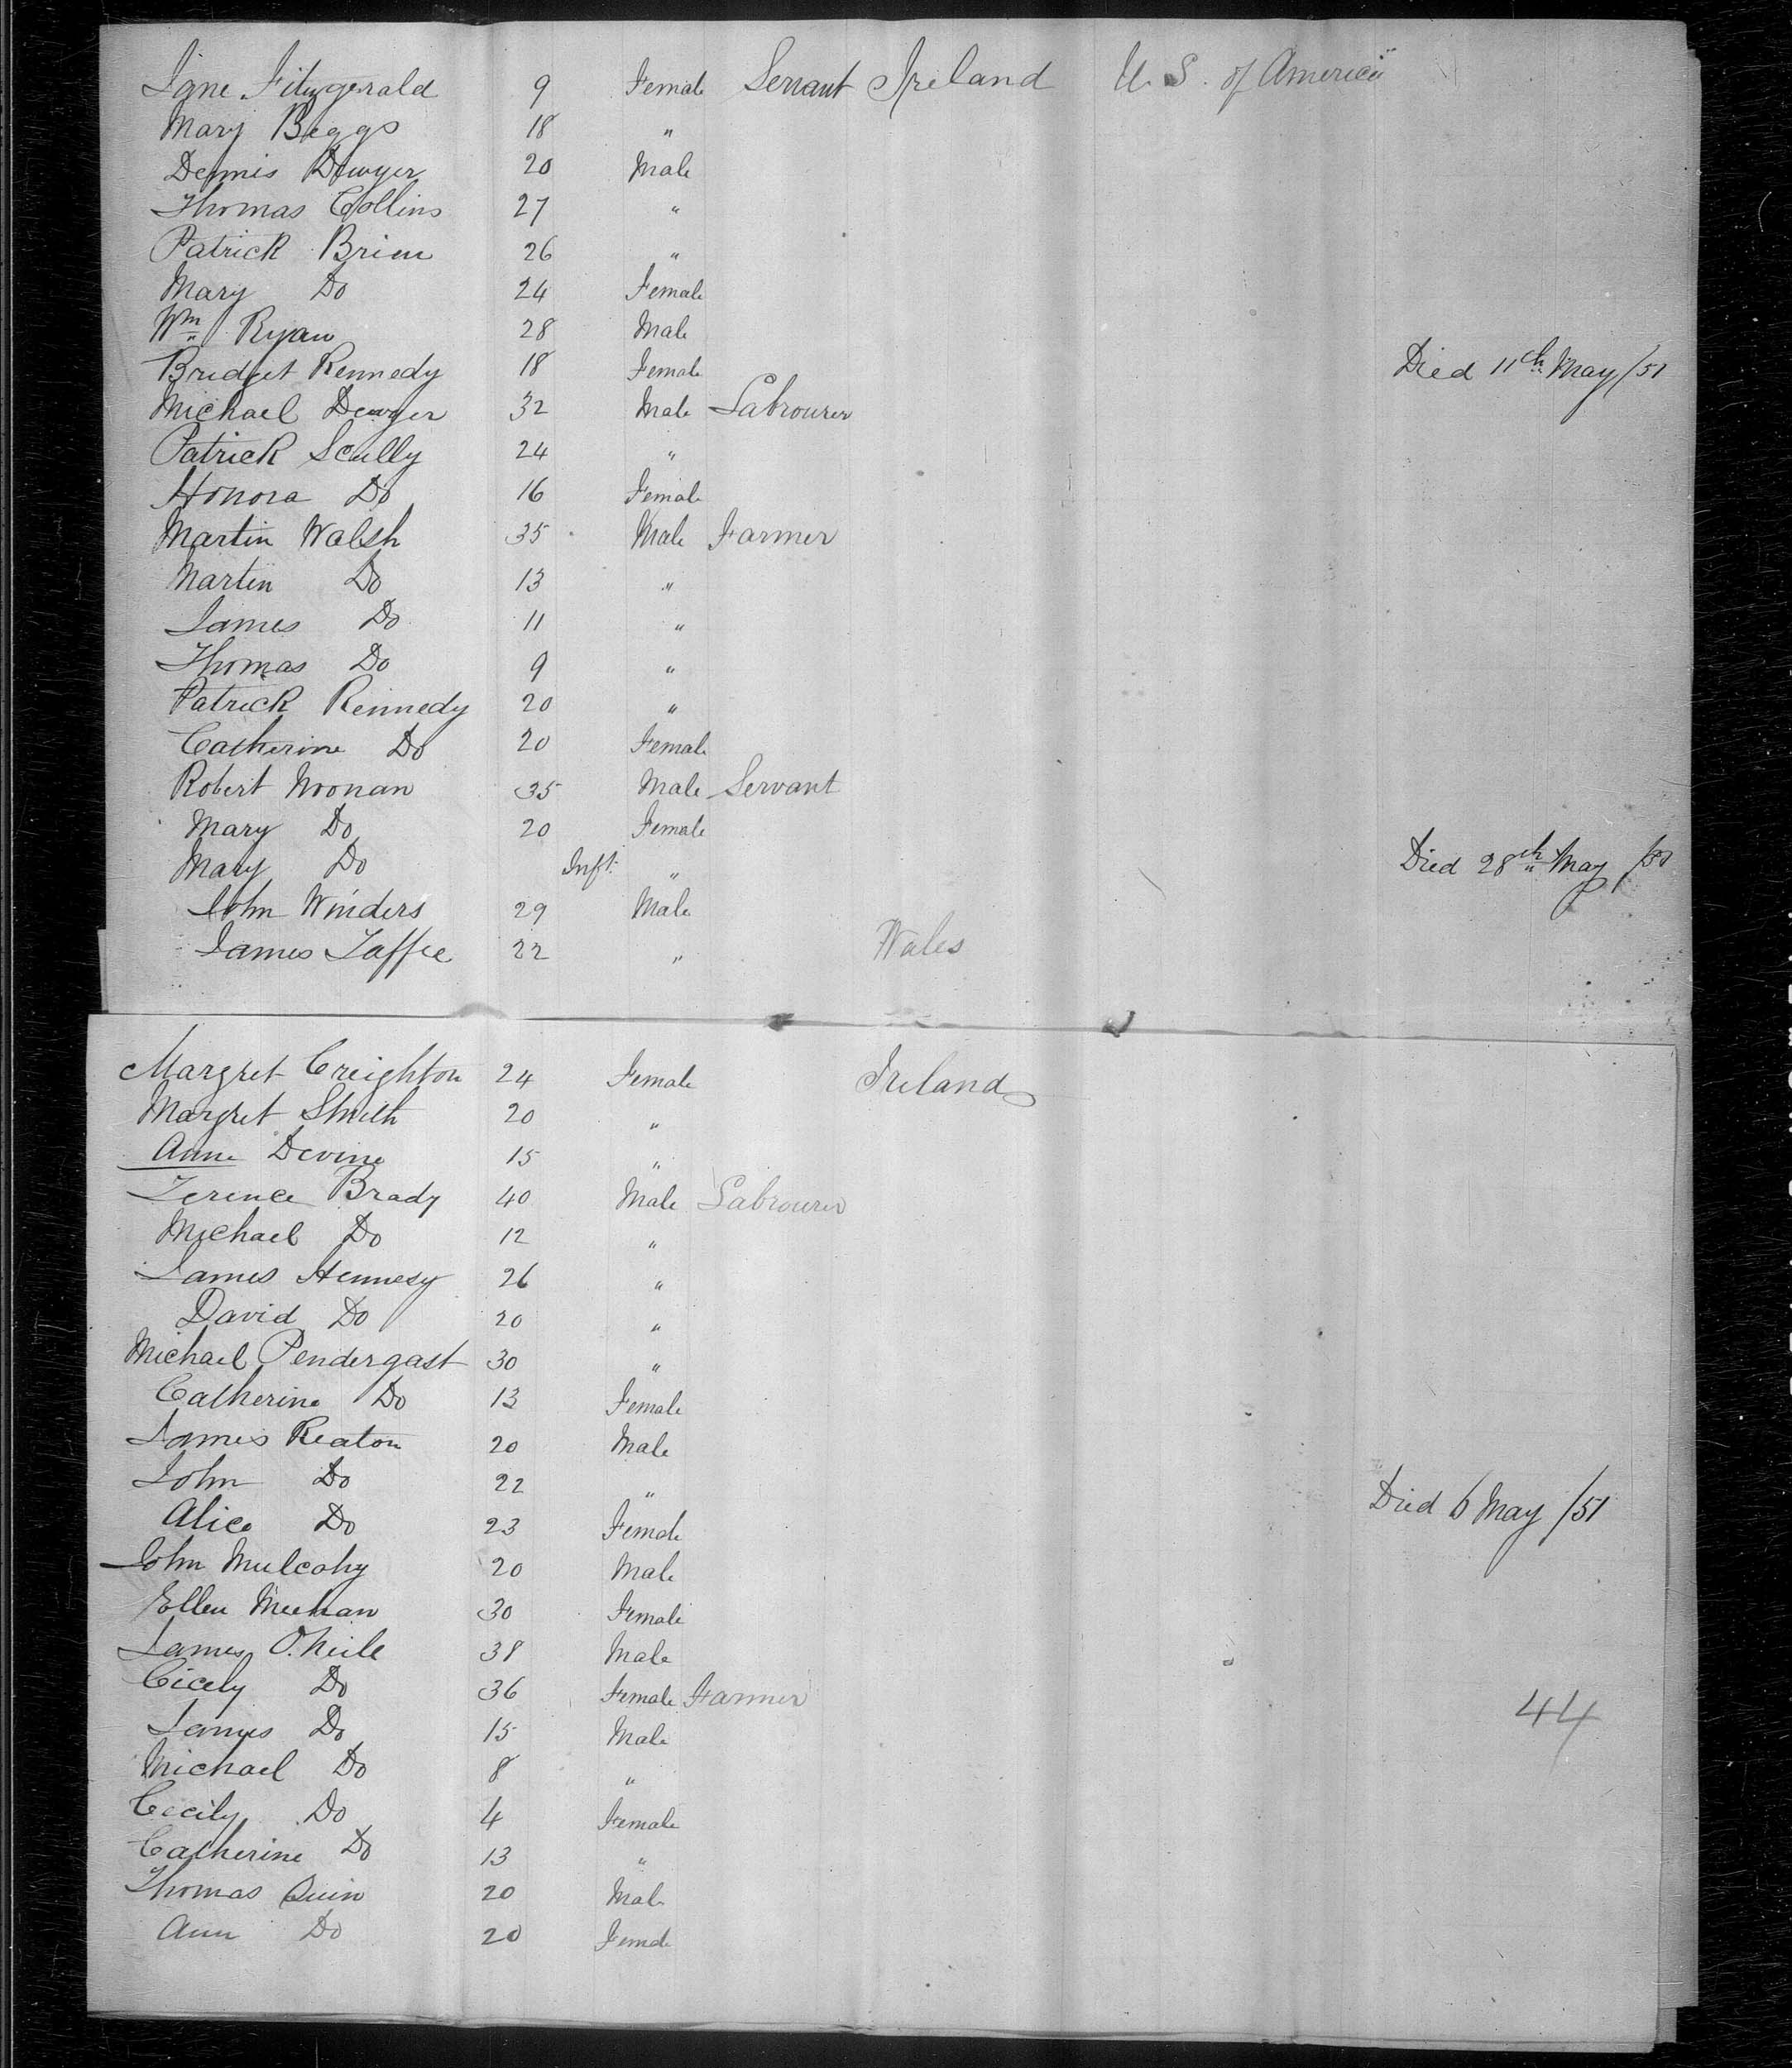 Jane Fitzgerald 9 Female Servant Ireland U. S. of America
Mary Beggs 18 "
Dennis Dwyer 20 Male
Thomas Collins 27 "
Patrick Brien 26 "
Mary Do 24 Female
Wm Ryan 28 Male
Bridget Kennedy 18 Female Died 11th May /51
Michael Dwyer 32 Male Labrourer
Patrick Scully 24 "
Honora Do 16 Female
Martin Walsh 35 Male Farmer
Martin Do 13 "
James Do 11 "
Thomas Do 9 "
Patrick Kennedy 20 "
Catherine Do 20 Female
Robert Noonan 35 Male Servant
Mary Do 20 Female
Mary Do Inft. " Died 28th May /51
John Winders 29 Male
James Taffee 22 " Wales
Margret Creighton 24 Female Ireland
Margret Smith 20 "
Anne Devine 15 "
Terence Brady 40 Male Labrourer
Michael Do 12 "
James Hennesy 26 "
David Do 20 "
Michael Pendergast 30 "
Catherine Do 13 Female
James Keaton 20 Male
John Do 22 " Died 6 May /51
Alice Do 23 Female
John Mulcahy 20 Male
Ellen Meehan 30 Female
James O.Neile 38 Male
Cicely Do 36 Female Farmer 44
James Do 15 Male
Michael Do 8 "
Cecily Do 4 Female
Catherine Do 13 "
Thomas Quin 20 Male
Ann Do 20 Female